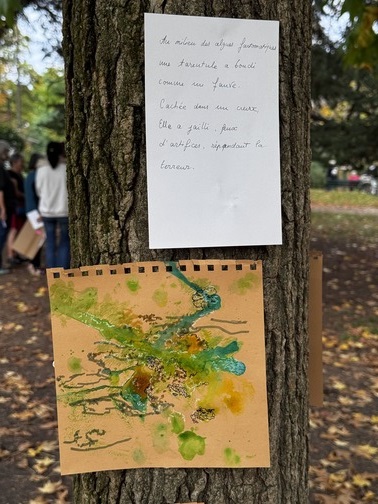 Au milieu des algues fantomatiques
une tarentule a bondi
comme un fauve.
Cachée dans un creux
Elle a jailli, feux
d'artifices, répandant la
terreur.